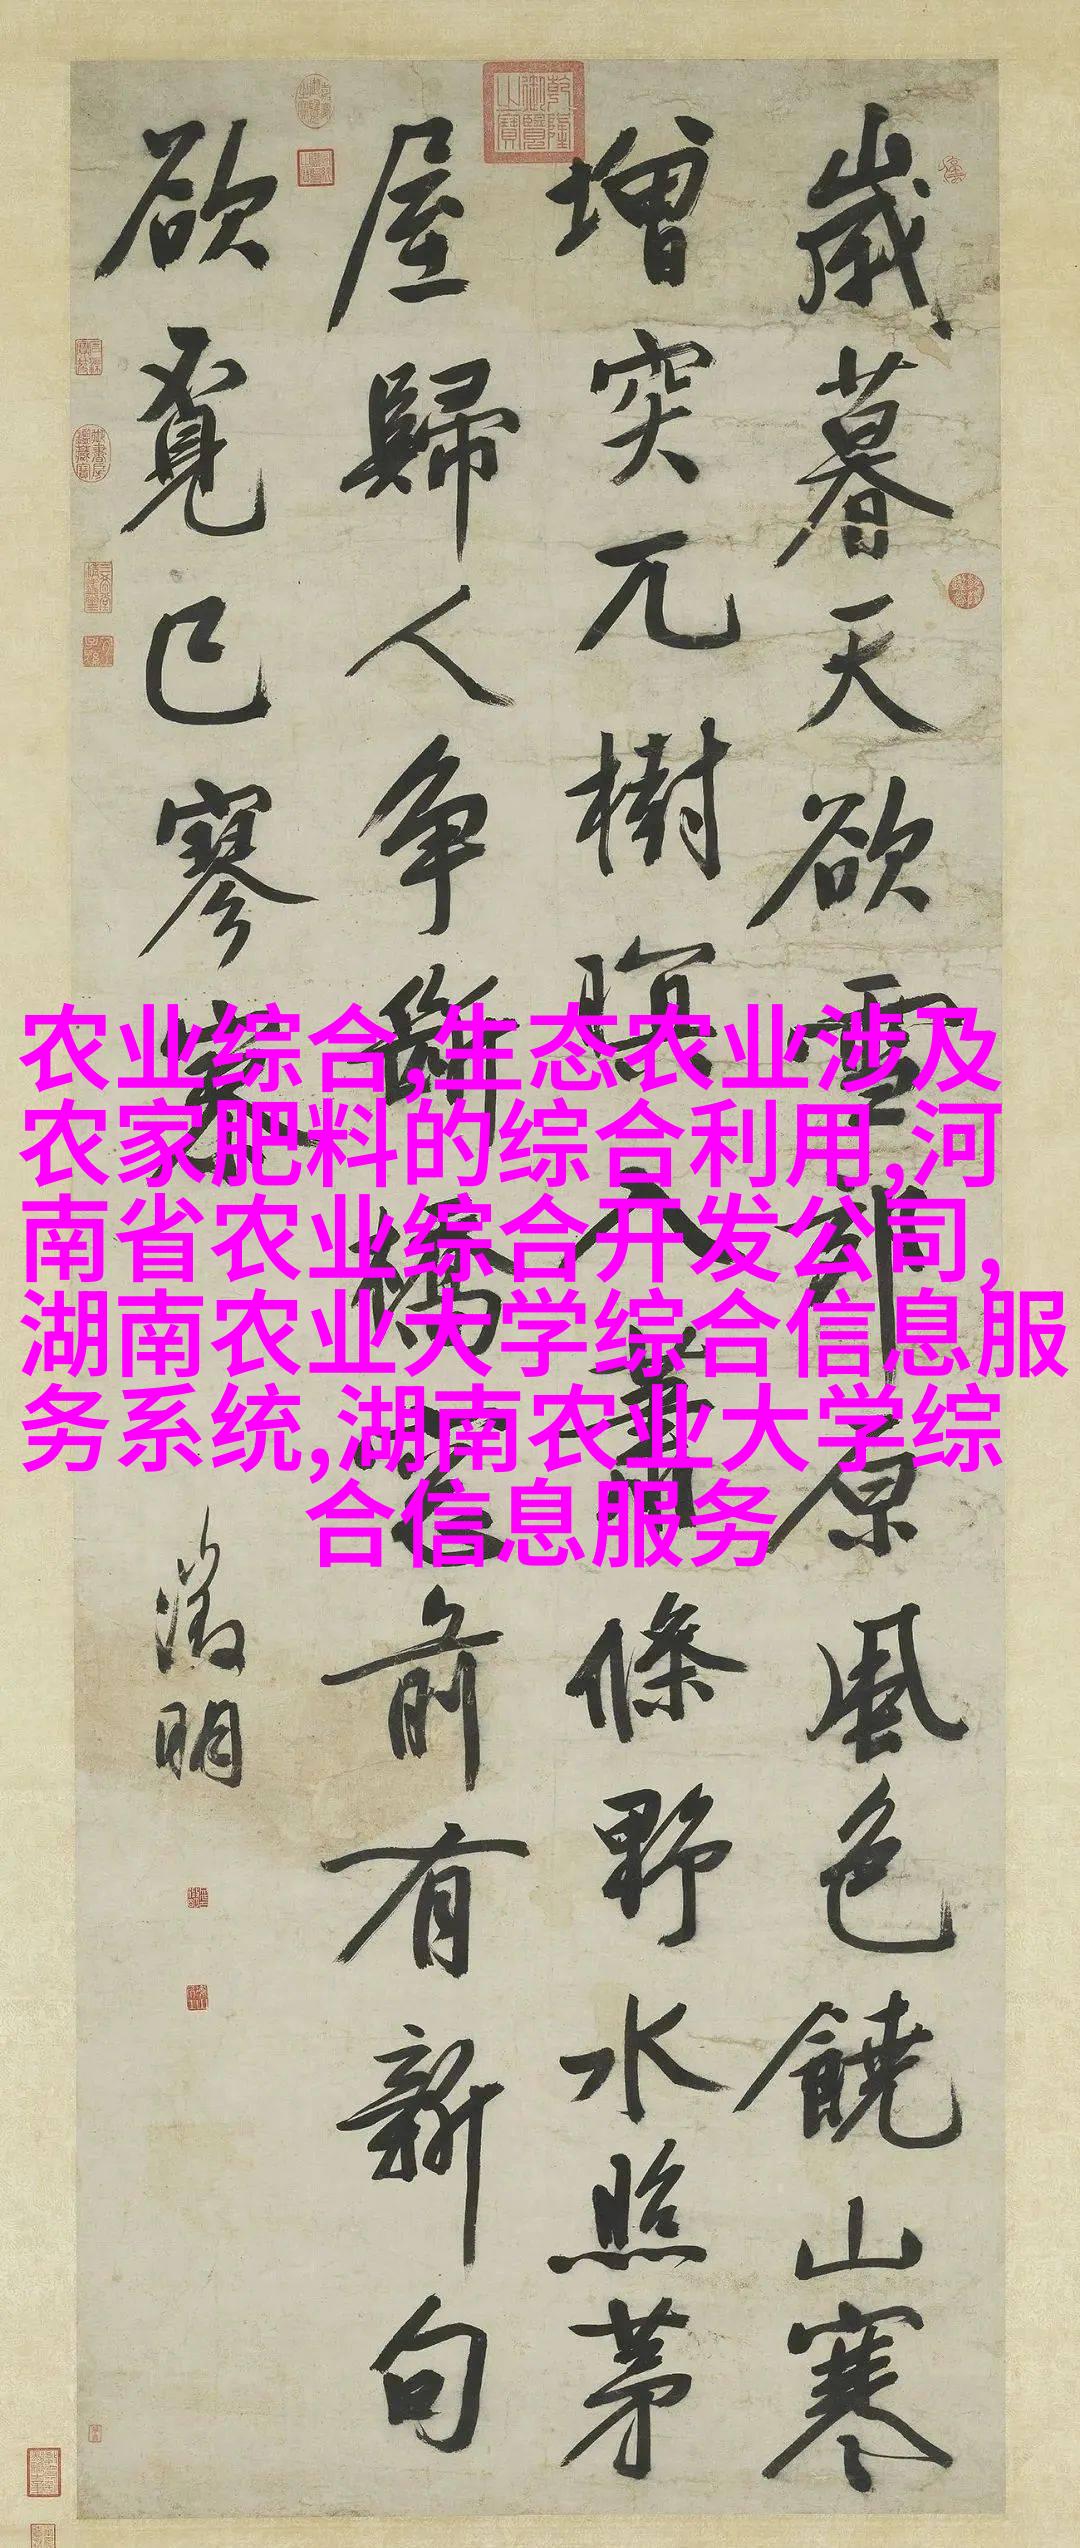 歲暮天欲雪郊原風色饒山寒
增突兀樹暝入蕭條野水照茅
屋歸人爭斷橋前有新句
欲覓已寥寥
徵明
乾隆御覽之寶
农业综合,生态农业涉及
农家肥料的综合利用,河
南省农业综合开发公司,
湖南农业大学综合信息服
务系统,湖南农业大学综
合信息服务